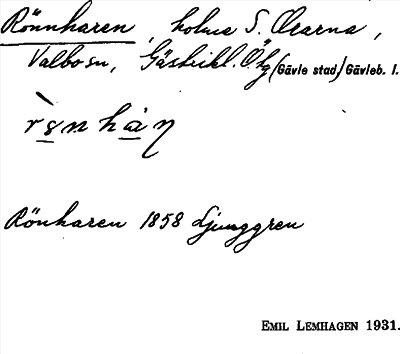 Rönnharen, holme S. Orarna,
Valbo sn, Gästrikl. Öhg (Gävle stad) Gävleb. l.
Rönharen 1858 Ljunggren
EMIL LEMHAGEN 1931.